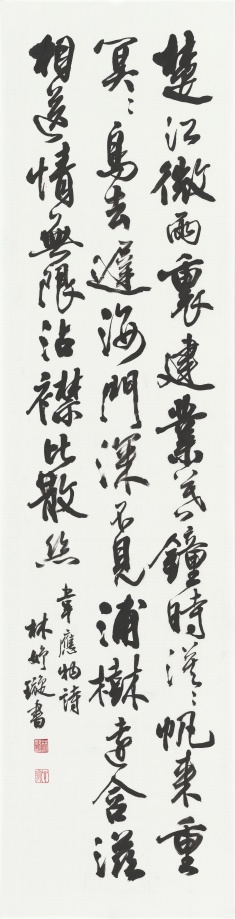 楚江微雨裏建業暮鐘時漠漠帆來重
冥冥鳥去遲海門深不見浦樹遠含滋
相送情無限沾襟比散絲
韋應物詩
林妤璇書